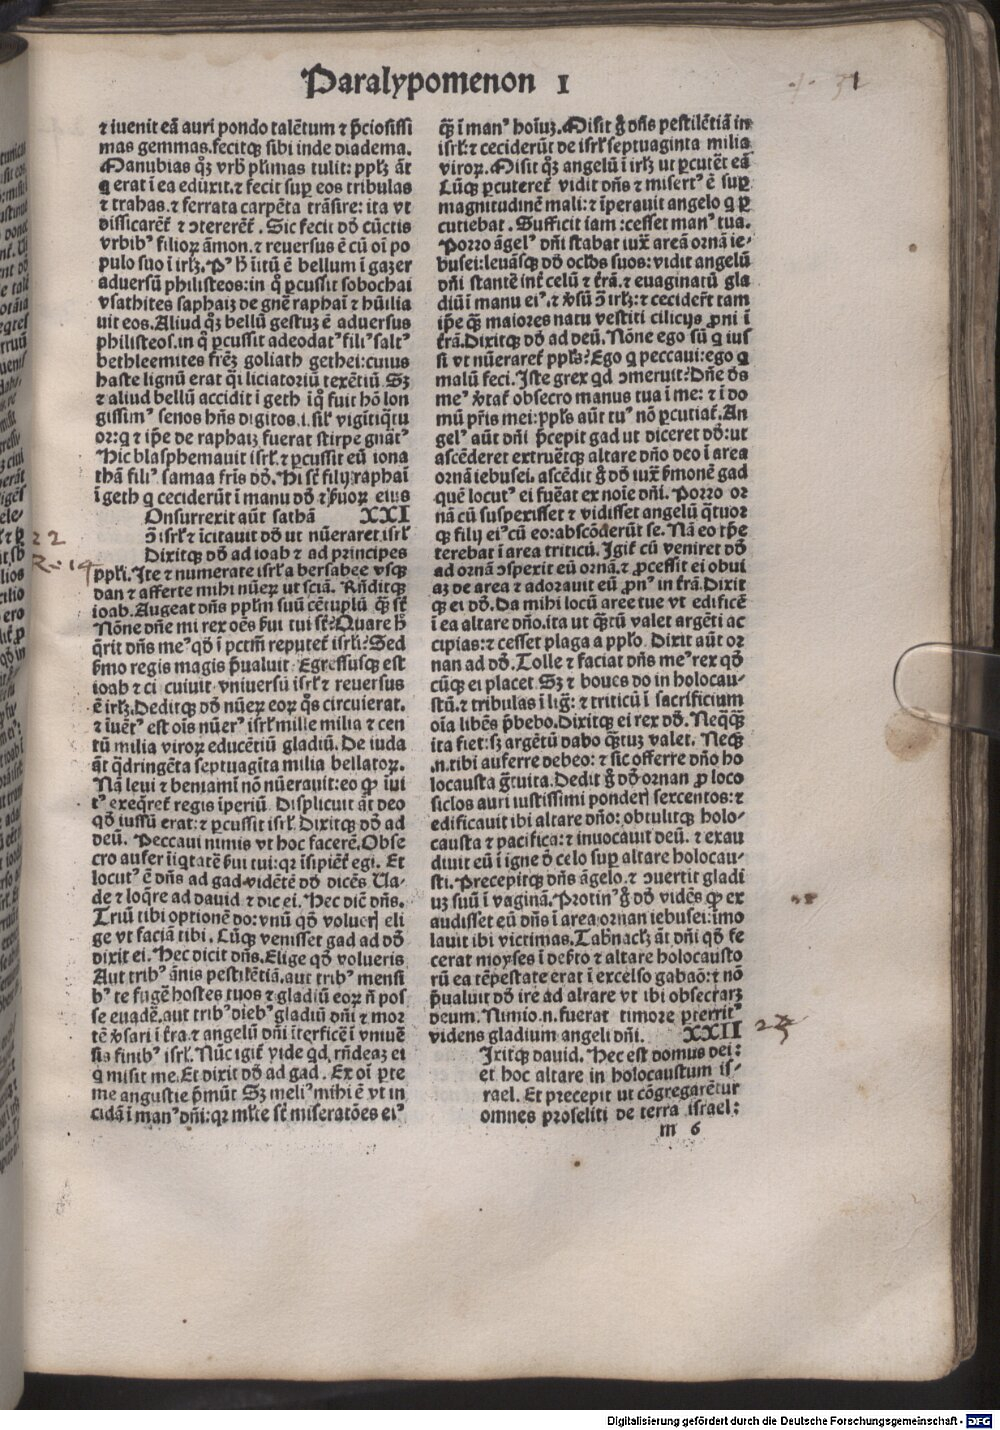 Paralypomenon I
⁊ iuenit eā auri pondo talētum ⁊ p̄ciosissi
mas gemmas. fecitqꝫ sibi inde diadema.
Manubias qͦꝫ vrbꝰ pl̓imas tulit: ppl̓ꝫ āt
q erat ī ea eduxit. ⁊ fecit suꝑ eos tribulas
⁊ trahas. ⁊ ferrata carpēta trāsire: ita vt
dissicarēt̄ ⁊ ↄtererēt̄. Sic fecit dd̄ cūctis
vrbibꝰ filioꝝ āmon. ⁊ reuersus ē cū oī po
pulo suo ī irl̓ꝫ. Pꝰ h̄ īitū ē bellum ī gazer
aduersū philisteos: in q̄ ꝑcussit sobochai
vsathites saphaiꝫ de gn̄e raphaī ⁊ hūilia
uit eos. Aliud qͦꝫ bellū gestuꝫ ē aduersus
philisteos. in q̄ ꝑcussit adeodatꝰ filiꝰ saltꝰ
bethleemites fr̄eꝫ goliath gethei: cuius
haste lignū erat q̄i liciatoriū texētiū. Sꝫ
⁊ aliud bellū accidit ī geth ī q̄ fuit hō lon
gissimꝰ senos hn̄s digitos. i. sil̓ vigītiq̄tu
or: q ⁊ ip̄e de raphaiꝫ fuerat stirpe gnātꝰ
Hic blasphemauit isrl̓. ⁊ ꝑcussit eū iona
thā filiꝰ samaa fr̄is dd̄. Hi st̄ filij raphaī
ī geth q ceciderūt ī manu dd̄ ⁊ ẜuoꝝ eius
Onsurrexit aūt sathā XXI
ↄ̄ isrl̓ ⁊ īcitauit dd̄ ut nūeraret isrl̓
Dixitqꝫ dd̄ ad ioab ⁊ ad principes
ppl̓i. Ite ⁊ numerate isrl̓ a bersabee vsqꝫ
dan ⁊ afferte mihi nūeꝝ ut sciā. Rn̄ditqꝫ
ioab. Augeat dn̄s ppl̓m suū cētuplū q̄ꝫ st̄
Nōne dn̄e mi rex oēs ẜui tui st̄? Quare h̄
q̄rit dn̄s meꝰ qd̄ ī pctm̄ reputet̄ isrl̓i? Sed
ẜmo regis magis p̄ualuit Egressusqꝫ est
ioab ⁊ ci cuiuit vniuersū isrl̓ ⁊ reuersus
ē irl̓ꝫ. Deditqꝫ dd̄ nūeꝝ eoꝝ q̄s circuierat.
⁊ īuētꝰ est oīs nūerꝰ isrl̓ mille milia ⁊ cen
tū milia viroꝝ educētiū gladiū. De iuda
āt q̄dringēta septuagīta milia bellatoꝝ.
Nā leui ⁊ beniamī nō nūerauit: eo ꝙ īui
tꝰ exeq̄ret̄ regis īperiū Displicuit āt deo
qd̄ iussū erat: ⁊ ꝑcussit isrl̓. Dixitqꝫ dd̄ ad
deū. Peccaui nimis vt hoc facerē. Obse
cro aufer īiq̄tatē ẜui tui: qꝛ īsipiēt̄ egi. Et
locutꝰ ē dn̄s ad gad vidētē dd̄ dicēs Ua⸗
de ⁊ loq̄re ad dauid ⁊ dic ei. Hec dic̄ dn̄s.
Triū tibi optionē do: vnū qd̄ volueris eli
ge vt faciā tibi. Cūqꝫ venisset gad ad dd̄
dixit ei. Hec dicit dn̄s. Elige qd̄ volueris
Aut tribꝰ ānis pestilētiā. aut tribꝰ mensi
bꝰ te fugē hostes tuos ⁊ gladiū eoꝝ n̄ pos
se euadē. aut tribꝰ diebꝰ gladiū dn̄i ⁊ mor
tē v̓sari ī t̄ra. ⁊ angelū dn̄i īterficē ī vniuē
sis finibꝰ isrl̓. Nūc igit̄ vide qd̓ rn̄deaꝫ ei
q misit me. Et dixit dd̄ ad gad. Ex oī ꝑte
me angustie p̄mūt Sꝫ meliꝰ mihi ē vt in
cidā ī manꝰ dn̄i: qꝛ ml̓te st̄ miseratōes eiꝰ
q̄ꝫ ī manꝰ hoīuꝫ. Misit ḡ dn̄s pestilētiā in
isrl̓: ⁊ ceciderūt de isrl̓ septuaginta milia
viroꝝ. Misit qͦꝫ angelū ī irl̓ꝫ ut ꝑcutēt eā
Cūqꝫ ꝑcuteret̄ vidit dn̄s ⁊ misertꝰ ē suꝑ
magnitudinē mali: ⁊ īperauit angelo q ꝑ
cutiebat. Sufficit iam: cesset manꝰ tua.
Porro āgelꝰ dn̄i stabat iux̄ areā ornā ie⸗
busei: leuāsqꝫ dd̄ ocl̓os suos: vidit angelū
dn̄i stantē int̄ celū ⁊ t̄rā. ⁊ euaginatū gla
diū ī manu eiꝰ. ⁊ v̓sū ↄ̄ irl̓ꝫ: ⁊ ceciderūt tam
ip̄e q̄ꝫ maiores natu vestiti cilicijs ꝓni ī
t̄rā. Dixitqꝫ dd̄ ad deū. Nōne ego sū q ius
si vt nūeraret̄ ppl̓s? Ego q peccaui: ego q
malū feci. Iste grex qd̓ ↄmeruit? Dn̄e d̄s
meꝰ v̓tat̄ obsecro manus tua ī me: ⁊ ī do
mū pr̄is mei: ppl̓s aūt tuꝰ nō ꝑcutiat̄. An
gelꝰ aūt dn̄i p̄cepit gad ut diceret dd̄: ut
ascēderet extruētqꝫ altare dn̄o deo ī area
ornā iebusei. ascēdit ḡ dd̄ iux̄ ẜmonē gad
quē locutꝰ ei fuēat ex noīe dn̄i. Porro or
nā cū suspexisset ⁊ vidisset angelū q̄tuor
qꝫ filij eiꝰ cū eo: abscōderūt se. Nā eo tp̄e
terebat ī area triticū. Igit̄ cū veniret dd̄
ad ornā ↄspexit eū ornā. ⁊ ꝓcessit ei obui
aꝫ de area ⁊ adorauit eū ꝓnꝰ in t̄rā. Dixit
qꝫ ei dd̄. Da mihi locū aree tue vt edificē
ī ea altare dn̄o. ita ut q̄tū valet argēti ac
cipias: ⁊ cesset plaga a ppl̓o. Dixit aūt or
nan ad dd̄. Tolle ⁊ faciat dn̄s meꝰ rex qd̄
cūqꝫ ei placet Sꝫ ⁊ boues do in holocau⸗
stū. ⁊ tribulas ī liḡ: ⁊ triticū ī sacrificium
oīa libēs p̄bebo. Dixitqꝫ ei rex dd̄. Neq̄qꝫ
ita fiet: sꝫ argētū dabo q̄tuꝫ valet. Neqꝫ
.n. tibi auferre debeo: ⁊ sic offerre dn̄o ho
locausta ḡtuita. Dedit ḡ dd̄ ornan ꝓ loco
siclos auri iustissimi ponderis sexcentos: ⁊
edificauit ibi altare dn̄o: obtulitqꝫ holo⸗
causta ⁊ pacifica: ⁊ inuocauit deū. ⁊ exau
diuit eū ī igne d̄ celo suꝑ altare holocau⸗
sti. Precepitqꝫ dn̄s āgelo. ⁊ ↄuertit gladi
uꝫ suū ī vaginā. Protinꝰ ḡ dd̄ vidēs ꝙ ex
audisset eū dn̄s ī area ornan iebusei: īmo
lauit ibi victimas. Tab̓nacl̓ꝫ āt dn̄i qd̄ fe
cerat moyses ī deẜto ⁊ altare holocausto
rū ea tēpestate erat ī excelso gabaō: ⁊ nō
p̄ualuit dd̄ ire ad altare vt ibi obsecraꝫ
deum. Nimio .n. fuerat timore ꝑterritꝰ
videns gladium angeli dn̄i. XXII
Ixitqꝫ dauid. Hec est domus dei:
et hoc altare in holocaustum is⸗
rael. Et precepit ut cōgregarētur
omnes proseliti de terra israel:
m 6
22
R = 14
31
23
Digitalisierung gefördert durch die Deutsche Forschungsgemeinschaft - DFG